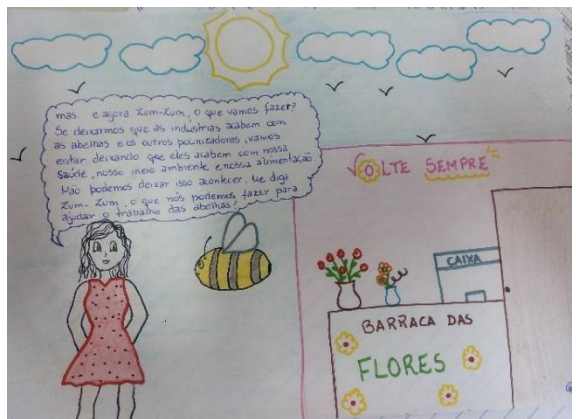 mas e agora Zum-Zum, o que vamos fazer?
Se deixarmos que as indústrias acabem com
as abelhas e os outros polinizadores, vamos
estar deixando que eles acabem com nossa
saúde, nosso meio ambiente e nossa alimentação.
Não podemos deixar isso acontecer. Me diga
Zum-Zum, o que nós podemos fazer para
ajudar o trabalho das abelhas?
VOLTE SEMPRE
CAIXA
BARRACA DAS
FLORES